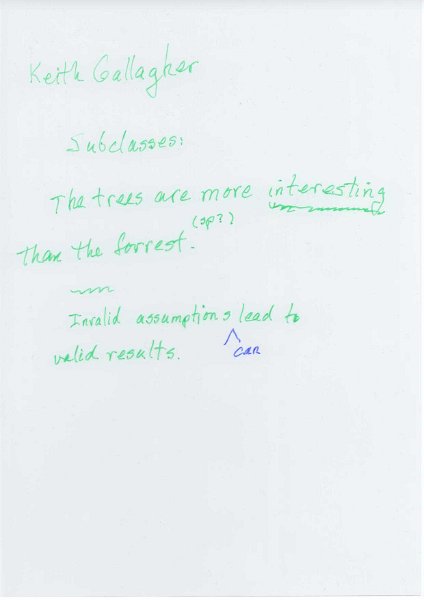 Keith Gallagher
Subclasses:
The trees are more interesting
(sp?)
than the forrest.
Invalid assumptions lead to
can
valid results.